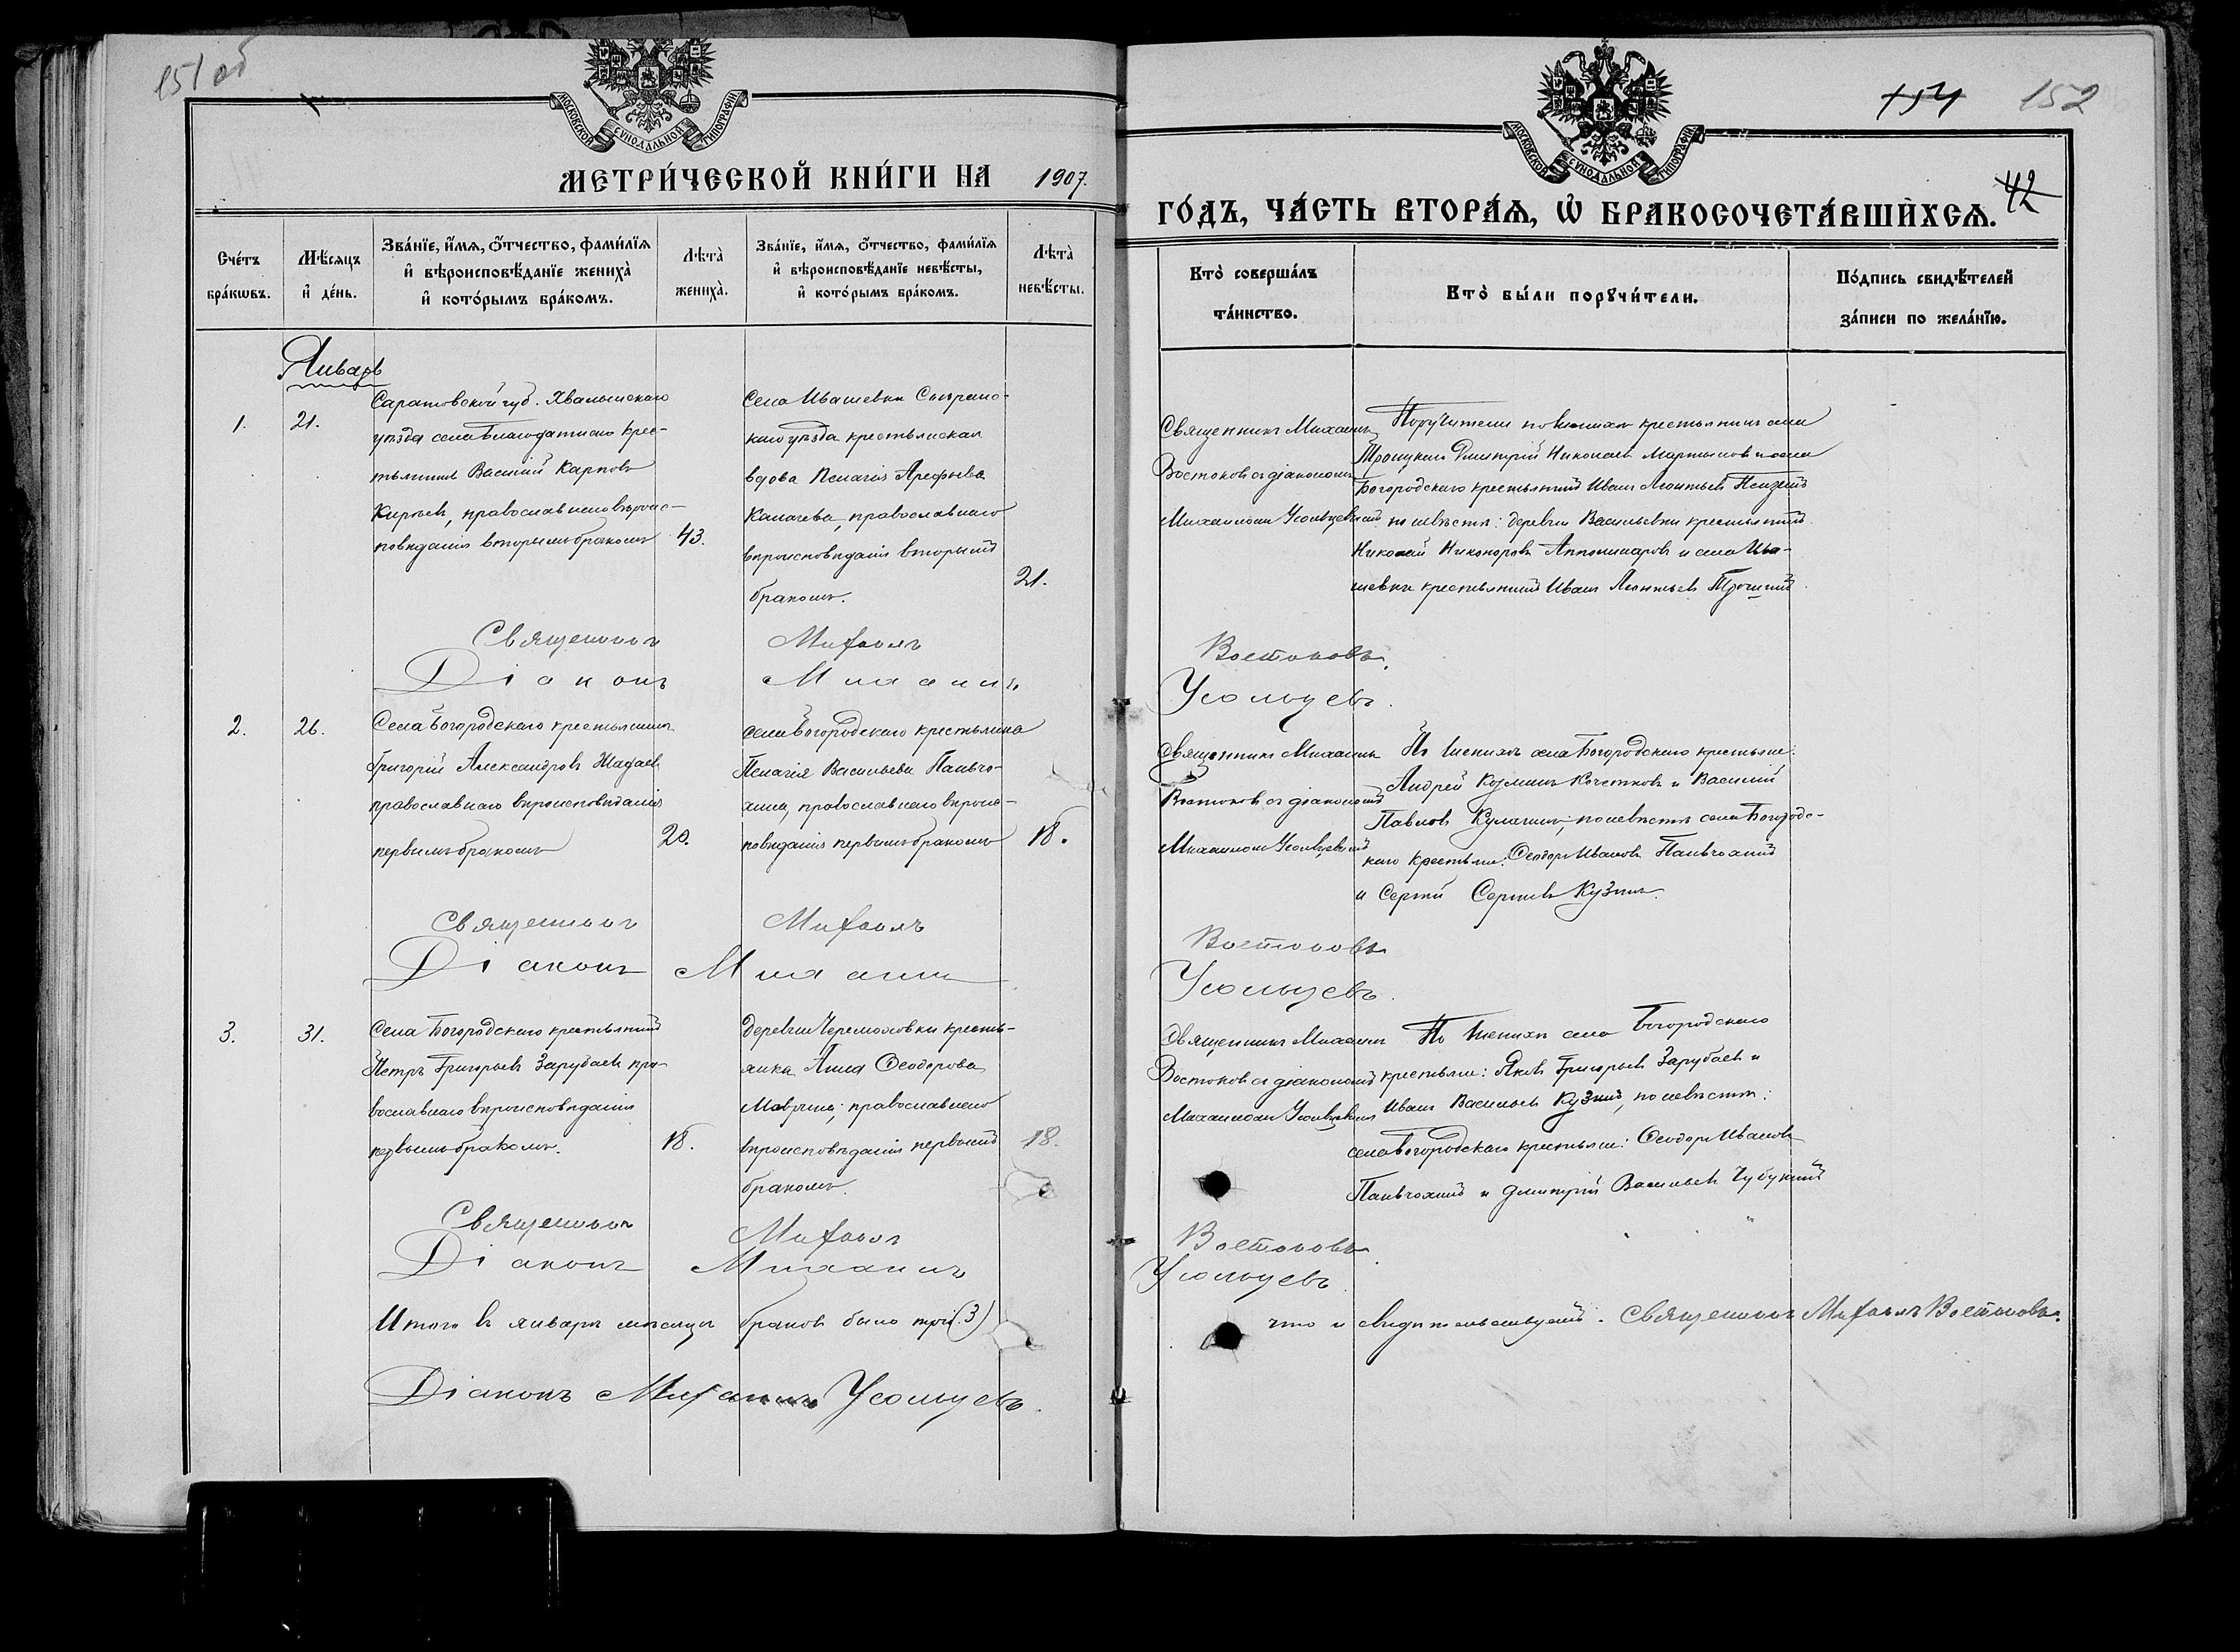 151 об
МОСКОВСКОЙ СУНОДАЛЬНОЙ ТИПОГРАФИИ
МЕТРИ́ЧЕСКОЙ КНИ́ГИ НА 1907.
Сче́тъ бра́кѡвъ.
Мѣ́сяцъ и҆ де́нь.
Зва́нїе, и҆́мѧ, ѻ҆́тчество, фами́лїѧ и҆ вѣроисповѣ́данїе жениха̀ и҆ кото́рымъ бра́комъ.
Лѣта̀ жениха̀.
Зва́нїе, и҆́мѧ, ѻ҆́тчество, фами́лїѧ и҆ вѣроисповѣ́данїе невѣ́сты, и҆ кото́рымъ бра́комъ.
Лѣта̀ невѣ́сты.
Январь
1.
21.
Саратовской губ. Хвалынскаго
уѣзда села Благодатнаго крес-
тьянинъ Василий Карповъ
Кирѣевъ, православнаго вѣроис-
повѣданія вторымъ бракомъ
43.
Села Ивашевки Сызранс-
каго уѣзда крестьянская
вдова Пелагія Арефьева
Калачева, православнаго
вѣроисповѣданія вторымъ
бракомъ.
21.
Священникъ Михаилъ
Діаконъ Михаилъ
2.
26.
Села Богородскаго крестьянинъ
Григорій Александровъ Жадаевъ
православнаго вѣроисповѣданія
первымъ бракомъ
20.
села Богородскаго крестьянка
Пелагія Васильева Паньчо-
хина, православнаго вѣроис-
повѣданія первымъ бракомъ
18.
Священникъ Михаилъ
Діаконъ Михаилъ
3.
31.
Села Богородскаго крестьянинъ
Петръ Григорьевъ Зарубаевъ пра-
вославнаго вѣроисповѣданія
первымъ бракомъ.
18.
деревни Черемоховки кресть-
янка Анна Ѳеодорова
Маврина, православнаго
вѣроисповѣданія первымъ
бракомъ.
18.
Священникъ Михаилъ
Діаконъ Михаилъ
Итого въ январѣ мѣсяцѣ браковъ было три (3)
Діаконъ Михаилъ Усольцевъ.
154 152
МОСКОВСКОЙ СУНОДАЛЬНОЙ ТИПОГРАФИИ
42
ГО́ДЪ, ЧА́СТЬ ВТОРА́Ѧ, Ѽ БРАКОСОЧЕТА́ВШИХСѦ.
Кто̀ соверша́лъ та́инство.
Кто̀ бы́ли порꙋчи́тели.
По́дпись свидѣ́телей за́писи по жела́нїю.
Священникъ Михаилъ
Востоковъ съ діакономъ
Михаиломъ Усольцевымъ
Поручители по женихѣ крестьянинъ села
Троицкаго Дмитрій Николаевъ Мартыновъ и села
Богородскаго крестьянинъ Иванъ Леонтьевъ
по невѣстѣ: деревни Васильевки крестьянинъ
Николай Никоноровъ и села Ива-
шевки крестьянинъ Иванъ Леонтьевъ
Востоковъ.
Усольцевъ.
Священникъ Михаилъ
Востоковъ съ діакономъ
Михаиломъ Усольцевымъ
По женихѣ села Богородскаго крестьяне:
Андрей Козминъ Кочетковъ и Василій
Павловъ Кулагинъ, по невѣстѣ села Богородс-
каго крестьяне: Ѳеодоръ Ивановъ Паньчохинъ
и Сергѣй Сергѣевъ Кузинъ.
Востоковъ
Усольцевъ.
Священникъ Михаилъ
Востоковъ съ діакономъ
Михаиломъ Усольцевымъ
По женихѣ села Богородскаго
крестьяне: Яковъ Григорьевъ Зарубаевъ и
Иванъ Васильевъ Кузинъ, по невѣстѣ:
села Богородскаго крестьяне: Ѳеодоръ Ивановъ
Паньчохинъ и Дмитрій Васильевъ Чубукинъ
Востоковъ
Усольцевъ
что и свидѣтельствуемъ. Священникъ Михаилъ Востоковъ.